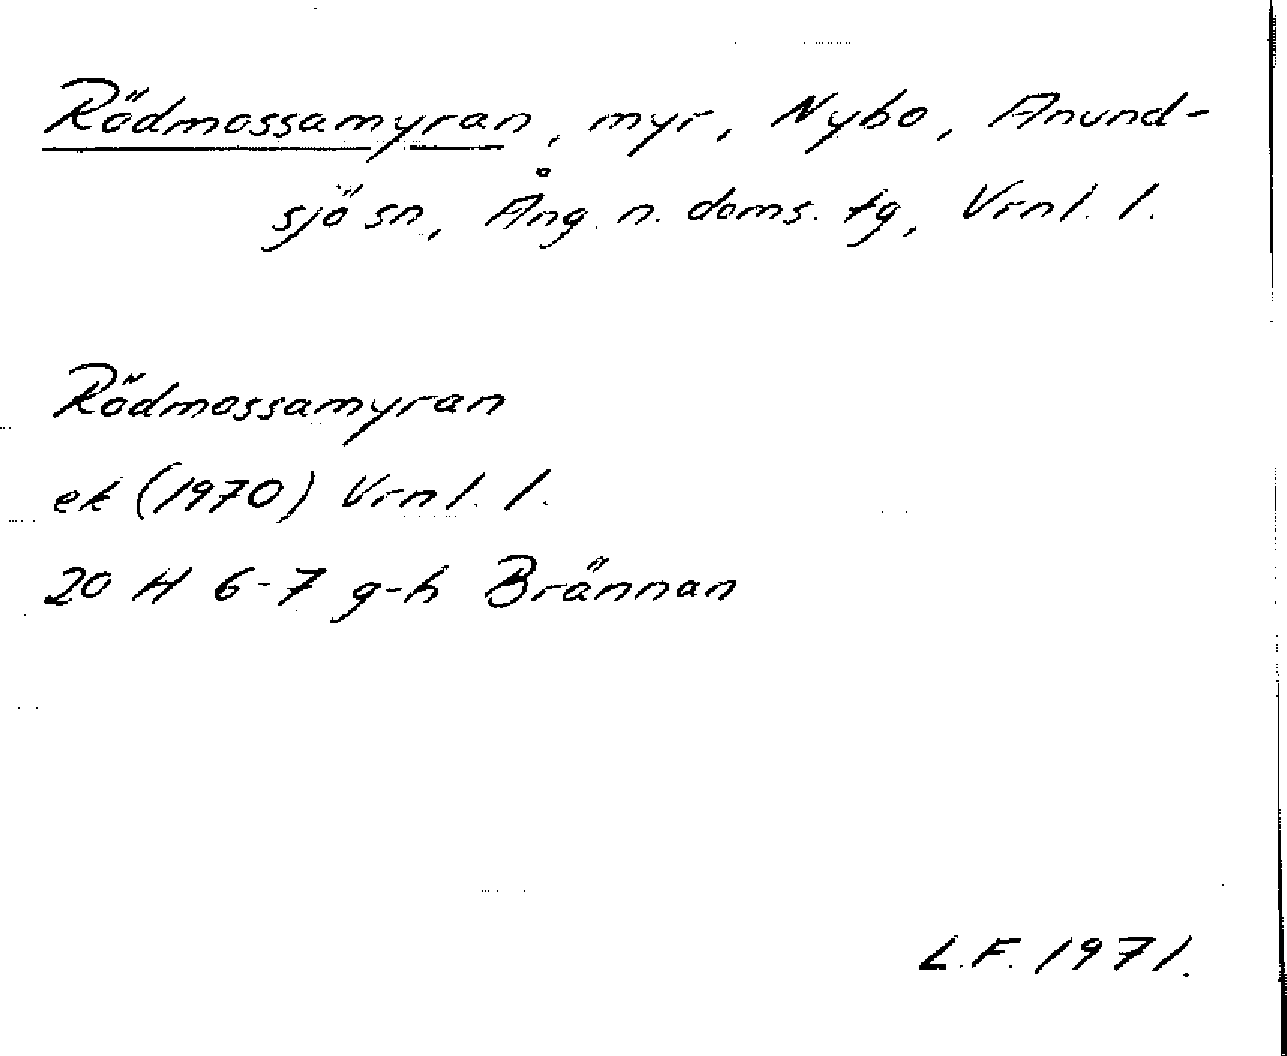 Rödmossamyran, myr, Nybo, Anund-
sjö sn, Ång. n. doms. tg, Vrnl. l.
Rödmossamyran
ek (1970) Vrnl. l.
20 H 6-7 g-h Brännan
L.F. 1971.